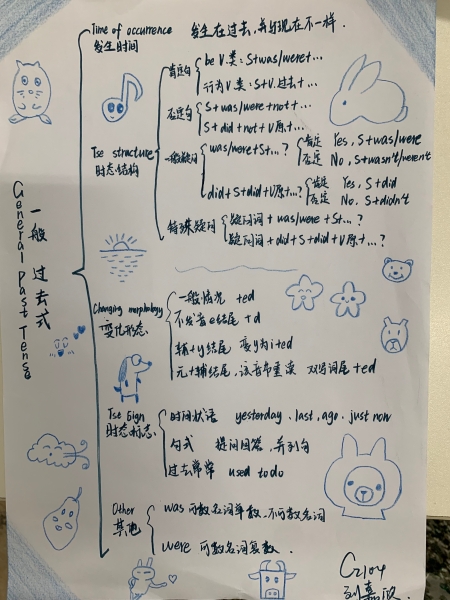 General Past Tense
一般过去式
Time of occurrence 发生在过去,并与现在不一样.
发生时间
Tse structure
时态结构
肯定句
be V类: S+was/were+...
行为V类: S+V.过去+...
否定句
S+was/were+not+...
S+did+not+V原+...
一般疑问
was/were+S+...?
肯定 Yes, S+was/were
否定 No, S+wasn't/weren't
did+S+did+V原+...?
肯定 Yes, S+did
否定 No, S+didn't
特殊疑问
疑问词+was/were+S+...?
疑问词+did+S+did+V原+...?
Changing morphology
变化形态
一般情况 +ed
不发音e结尾 +d
辅+y结尾 变y为i+ed
元+辅结尾,该音节重读 双写词尾+ed
Tse Sign
时态标志
时间状语 yesterday、last、ago、just now
句式 提问回答、并列句
过去常常 used to do
Other
其他
was 可数名词单数、不可数名词
were 可数名词复数.